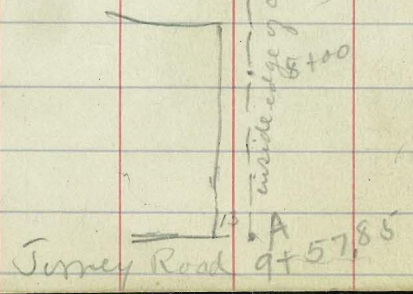 inside edge of
+00
A
Jersey Road 9+57.85